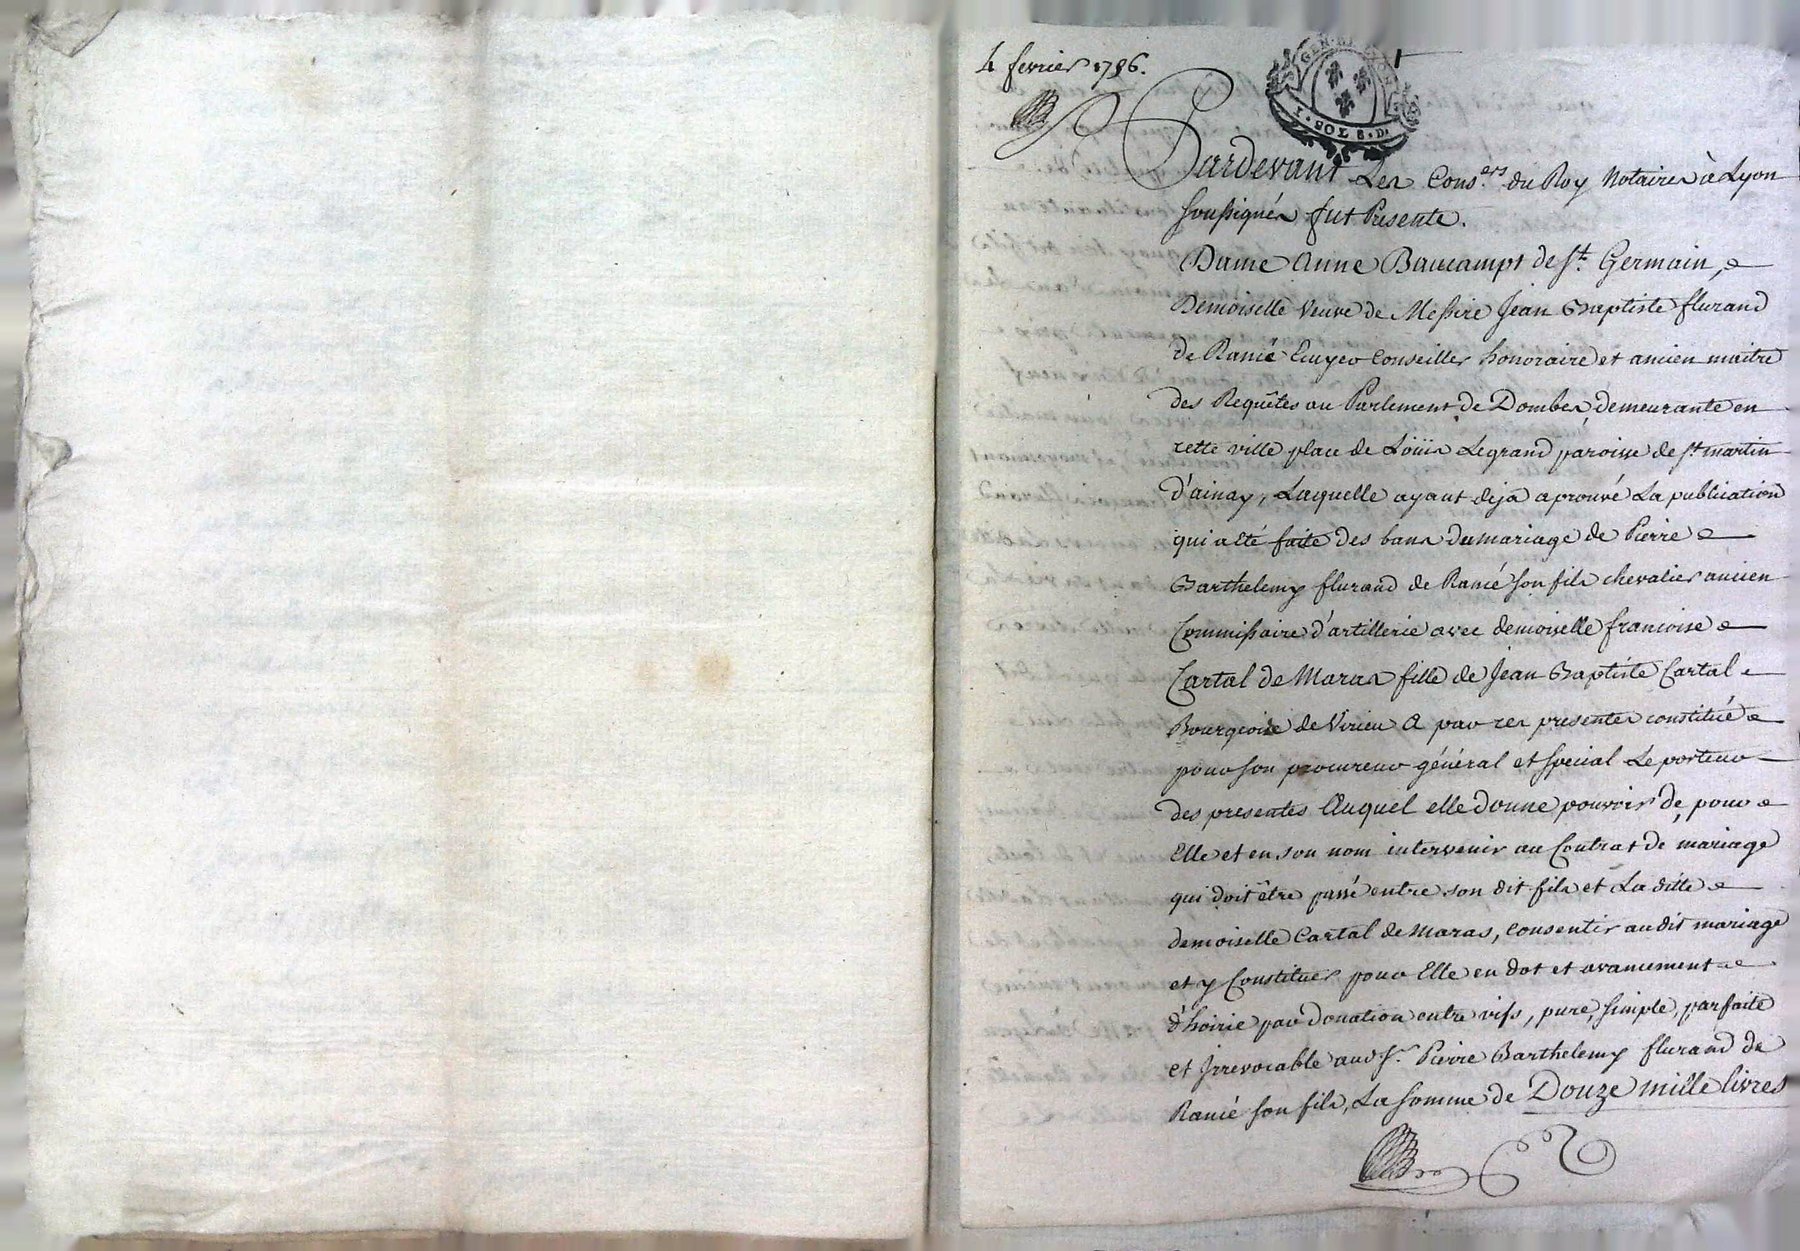 4 fevrier 1786.
GEN. DE
1. SOL 8. D.
Pardevant Les Cons.ers du Roy Notaires à Lyon
soussignés fut Presente.
Dame Anne Baucamps de St. Germain,
Demoiselle Veuve de Messire Jean Baptiste flurand
de Rancé Ecuyer Conseiller honoraire et ancien maitre
des Requêtes au Parlement de Dombes, demeurante en
cette ville place de Loüis Legrand paroisse de St. martin
d'ainay, Laquelle ayant deja aprouvé La publication
qui a été faite des bans du mariage de Pierre
Barthelemy flurand de Rancé son fils chevalier ancien
Commissaire d'artillerie avec demoiselle francoise
Cartal de Maras fille de Jean Baptiste Cartal
Bourgeois de Virieu A par ces presentes constitué
pour son procureur général et special Le porteur
des presentes Auquel elle donne pouvoir de, pour
Elle et en son nom intervenir au Contrat de mariage
qui doit être passé entre son dit fils et La ditte
demoiselle Cartal de Maras, consentir au dit mariage
et y Constituer pour Elle en dot et avancement
d'hoirie par donation entre vifs, pure, simple, parfaite
et Irrevocable aud. Sr. Pierre Barthelemy flurand de
Rancé son fils, La somme de Douze mille livres